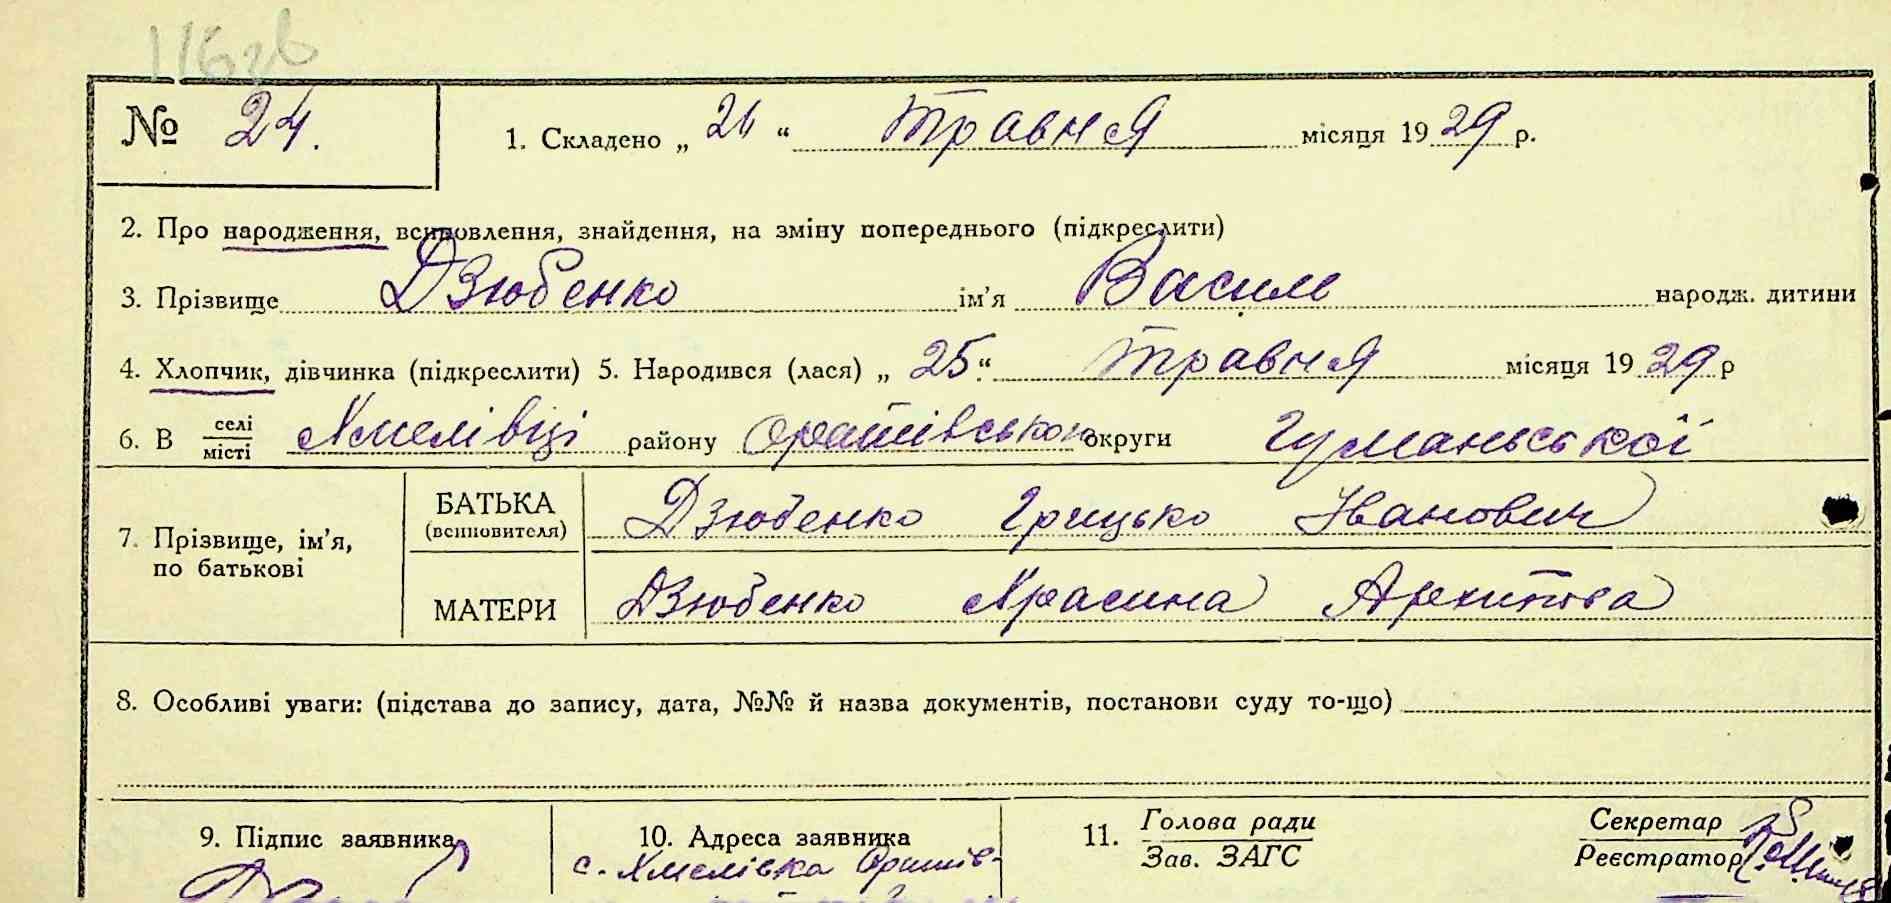 116зв
№ 24.
1. Складено „ 26 “ травня місяця 1929 р.
2. Про народження, всиновлення, знайдення, на зміну попереднього (підкреслити)
3. Прізвище Дзюбенко ім’я Василь народж. дитини
4. Хлопчик, дівчинка (підкреслити) 5. Народився (лася) „ 25 “ травня місяця 1929 р
6. В селі/місті Хмелівці району Оратівського округи Гуманьської
7. Прізвище, ім’я, по батькові
БАТЬКА (всиновителя) Дзюбенко Грицько Іванович
МАТЕРИ Дзюбенко Красина Архипова
8. Особливі уваги: (підстава до запису, дата, №№ й назва документів, постанови суду то-що)
9. Підпис заявника
10. Адреса заявника
с. Хмелівка Оратів-
11. Голова ради
Зав. ЗАГС
Секретар
Реєстратор